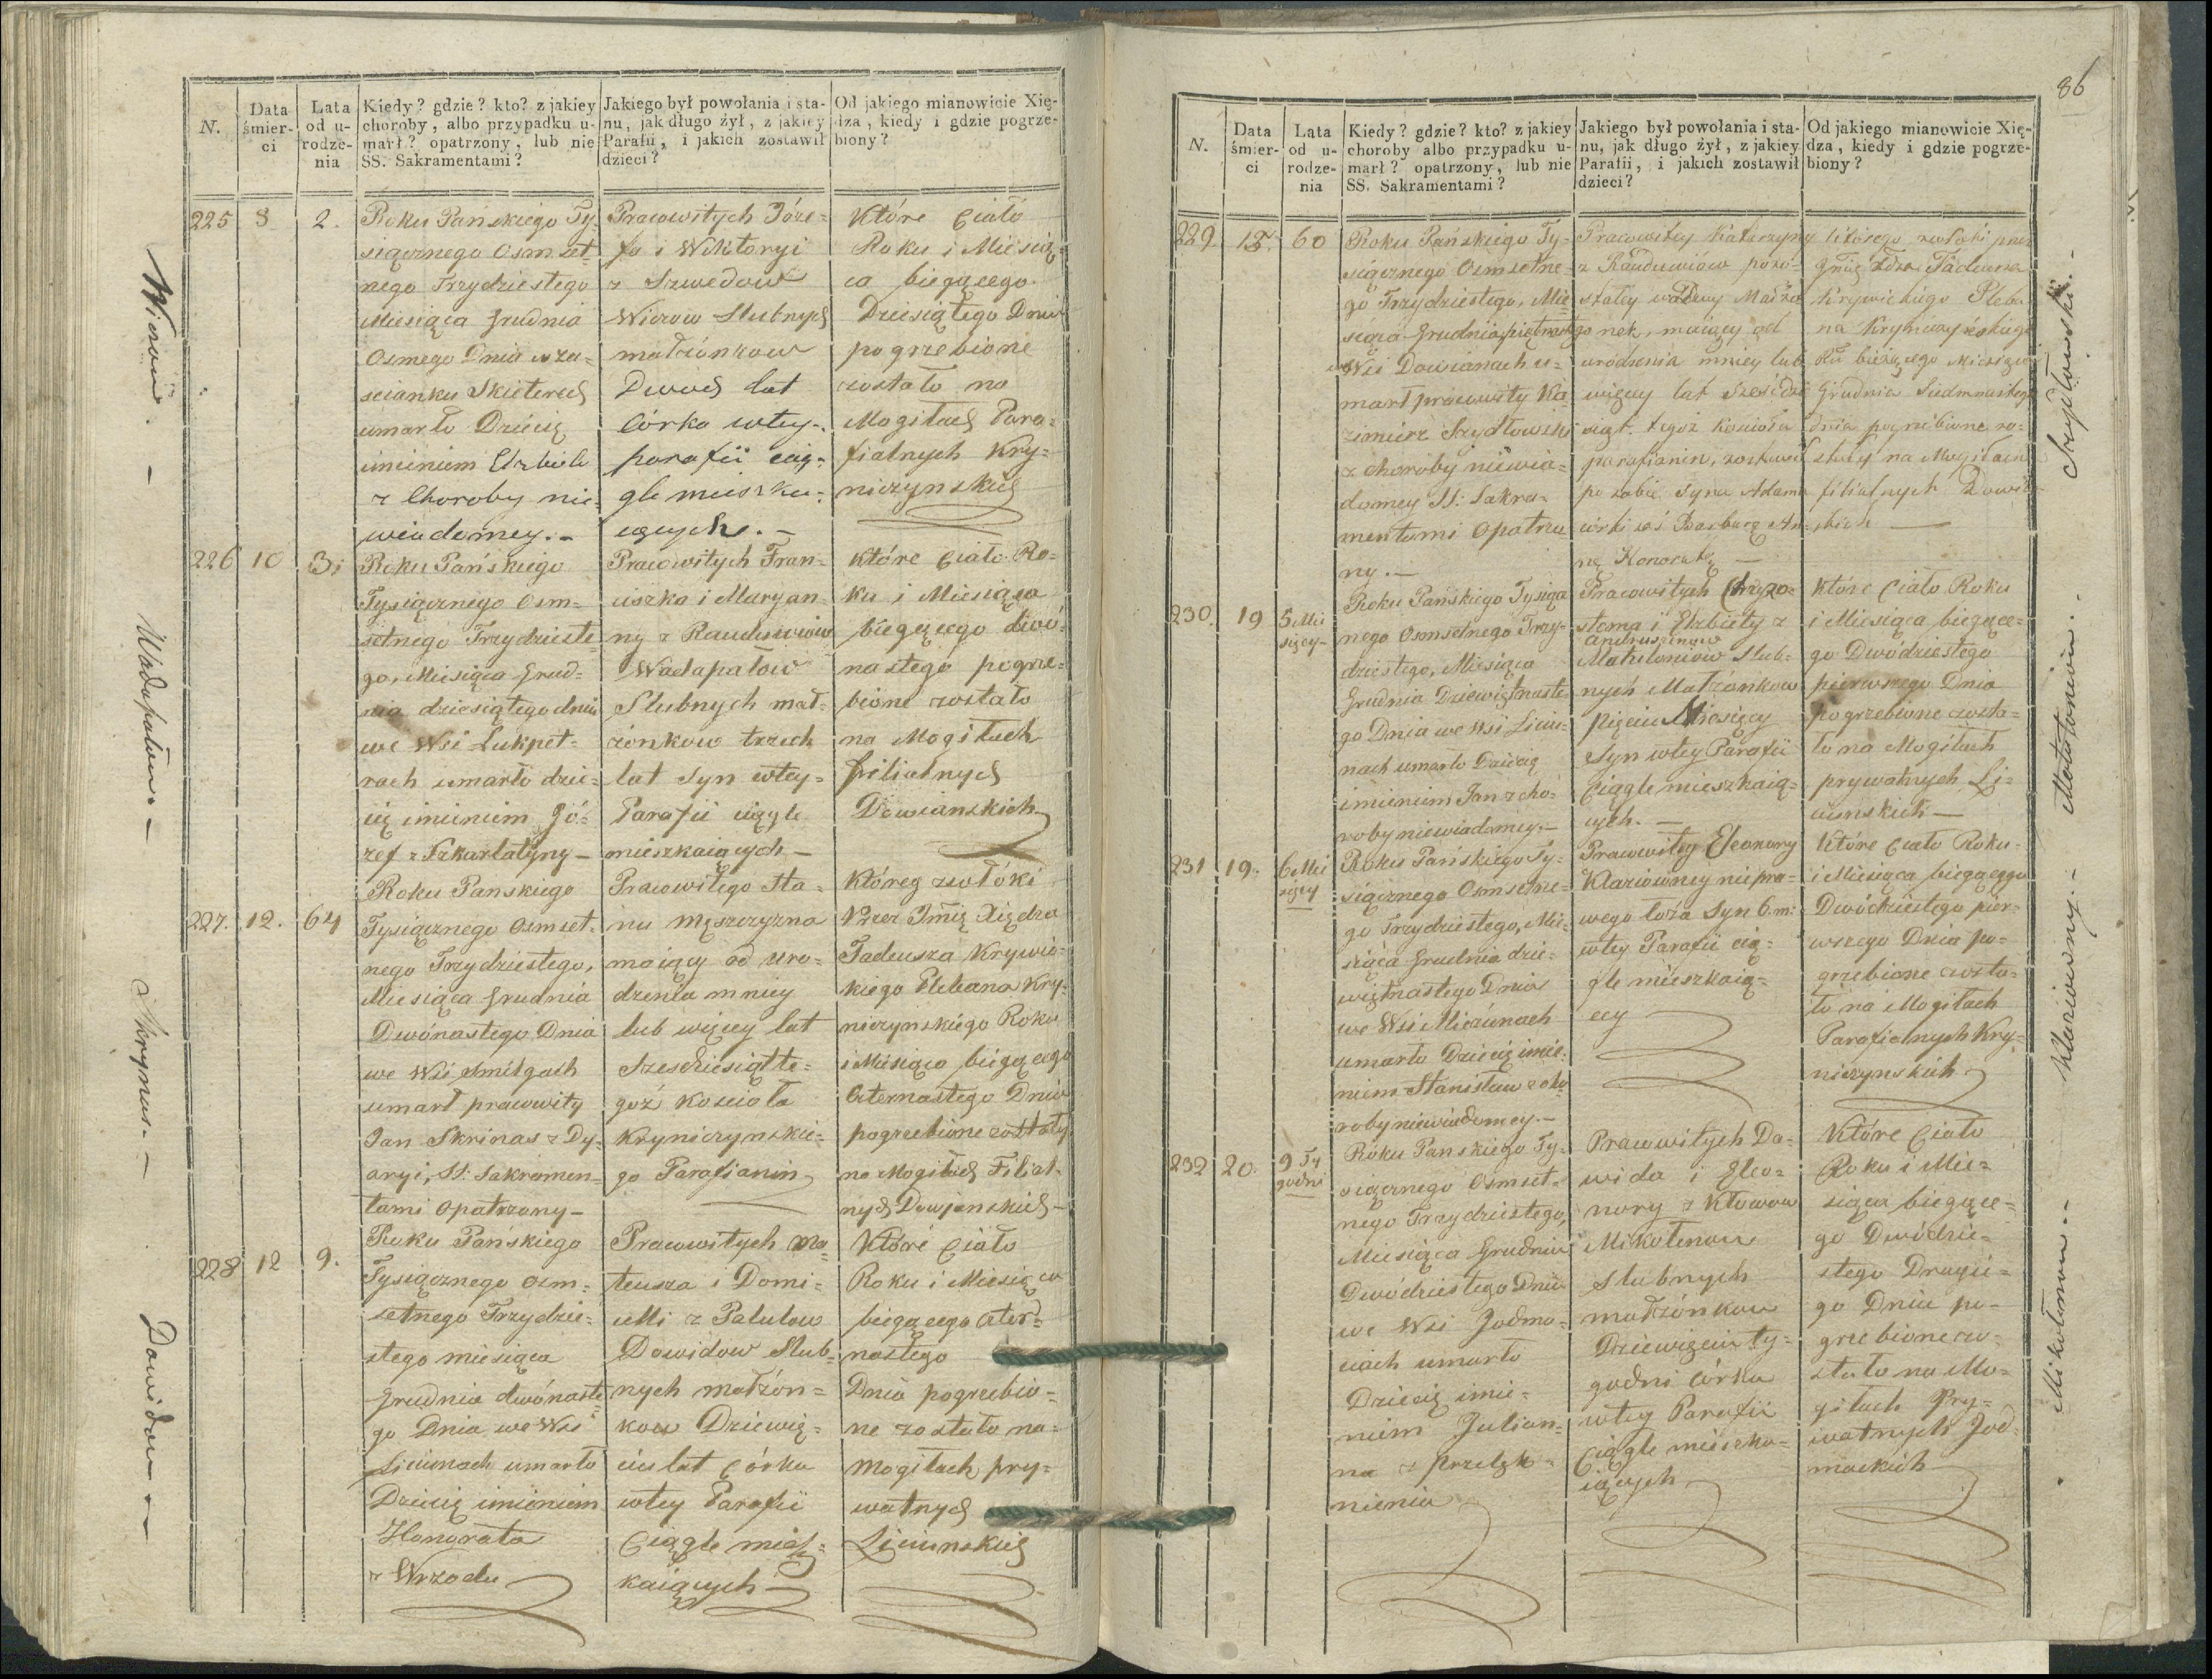 N.
Data śmier- ci
Lata od u- rodze- nia
Kiedy? gdzie? kto? z jakiey
choroby, albo przypadku u-
marł? opatrzony, lub nie
SS. Sakramentami?
Jakiego był powołania i sta-
nu, jak długo żył, z jakiey
Parafii, i jakich zostawił
dzieci?
Od jakiego mianowicie Xię-
dza, kiedy i gdzie pogrze-
biony?
225
8
2.
Roku Pańskiego Ty-
siącznego Osmset-
nego Trzydziestego
Miesiąca Grudnia
Osmego Dnia w za-
scianku Skieterach
umarło Dziécię
imieniem Elzbieta
z Choroby nie-
wiadomey.-
Pracowitych Józe-
fa i Wiktoryi
z Szwedow
Wierow Slubnych
małżonkow
Dwoch lat
Córka wtey-
parafii cią-
gle mieszka-
iących.-
Które Ciało
Roku i Miesią-
ca biegącego
Dziesiątego Dnia
pogrzebione
zostało na
Mogiłach Para-
fialnych Kry-
niczynskich
226
10
3.
Roku Pańskiego
Tysiącznego Osm-
setnego Trzydzieste-
go, Miesiąca Grud-
nia dziesiątego dnia
we Wsi Lukpet-
rach umarło dzie-
cię imieniem Jó-
zef z Szkarlatyny-
Pracowitych Fran-
ciszka i Maryan-
ny z Rauduwiow
Wadapałow
Slubnych mał-
żonkow trzech
lat Syn wtey-
Parafii ciągle
mieszkaiących-
Które Ciało Ro-
ku i Miesiąca
biegącego dwó-
nastego pogrze-
bione zostało
na Mogiłach
filialnych
Dowianskich
227.
12.
64
Roku Panskiego
Tysiącznego Osmset-
nego Trzydziestego,
Miesiąca Grudnia
Dwónastego Dnia
we Wsi Smilgach
umarł pracowity
Jan Skrinas z Dy-
aryi, SS: Sakramen-
tami opatrzony-
Pracowitego Sta-
nu Męszczyzna
maiący od uro-
dzenia mniey
lub więcey lat
Szesdziesiąt te-
goż Koscioła
Kryniczynskie-
go Parafianin
Któreg zwłóki
Przez Jmię Xiędza
Tadeusza Krywic-
kiego Plebana Kry-
niczynskiego Roku
i Miesiąca biegącego
Czternastego Dnia
pogrzebione zostały
na Mogiłach Filial-
nych Dowjanskich-
228
12
9.
Roku Pańskiego
Tysiącznego Osm-
setnego Trzydzie-
stego miesiąca
Grudnia dwónaste-
go Dnia we Wsi
Liciunach umarło
Dziécię imieniem
Honorata
z Wrzodu
Pracowitych Ma-
teusza i Domi-
celli z Palulow
Dowidow Slub-
nych małżón-
kow Dziewię-
ciu lat Córka
wtey Parafii
Ciągle miesz-
kaiących-
Które Ciało
Roku i Miesiąca
biegącego Czter-
nastego
Dnia pogrzebio-
ne zostało na-
Mogiłach pry-
watnych
Liciunskich
Wierow.-
Wadapałow.-
Skrynas.-
Dowidow.-
86
N.
Data śmier- ci
Lata od u- rodze- nia
Kiedy? gdzie? kto? z jakiey
choroby albo przypadku u-
marł? opatrzony, lub nie
SS. Sakramentami?
Jakiego był powołania i sta-
nu, jak długo żył, z jakiey
Parafii, i jakich zostawił
dzieci?
Od jakiego mianowicie Xię-
dza, kiedy i gdzie pogrze-
biony?
229
15.
60
Roku Pańskiego Ty-
siącznego Osmsetne-
go Trzydziestego, Mie-
siąca Grudnia piętnastego
Wsi Dowianach u-
marł pracowity Ka-
zimierz Szydłowski
z choroby niewia-
domey SS: Sakra-
mentami Opatrzo-
ny.-
Pracowitey Katarzyny
z Rauduwiow pozo-
stałey wdowy Małżo-
nek, maiący od
urodzenia mniey lub
więcey lat Sześćdzie-
siąt. tegoż Koscioła
parafianin, zostawił
po sobie Syna Adama
córki zaś Barbarę An-
nę Konocatę
którego zwłoki przez
Tadeusza
Krywickiego Pleba-
na Kryniczyńskiego
Ru bieżącego Miesiąca
Grudnia Siedmnastego
dnia pogrzebione zo-
stały na Mogiłach
filialnych Dowia-
skich
230.
19
5 Mie sięcy-
Roku Pańskiego Tysiącz-
nego Osmsetnego Trzy-
dziestego, Miesiąca
Grudnia Dziewiętnaste-
go Dnia we Wsi Liciu-
nach umarło Dziécię
imieniem Jan z cho-
roby niewiadomey.-
Pracowitych Chryzo-
stoma i Elzbiety z
Andruszonow
Matuloniow Slub-
nych Małżonkow
pięciu Miesięcy
Syn wtey Parafii
Ciągle mieszkaią-
cych.-
Które Ciało Roku
i Miesiąca biegące-
go Dwódziestego
pierwszego Dnia
pogrzebione zosta-
ło na Mogiłach
prywatnych Li-
ciunskich-
231
19.
6 Mie sięcy
Roku Pańskiego Ty-
siącznego Osmsetne-
go Trzydziestego, Mie-
siąca Grudnia dzie-
więtnastego Dnia
we Wsi Miciunach
umarło Dziécię imie-
niem Stanisław z cho-
roby niewiadomey.-
Pracowitey Eleonory
Klariowney niepra-
wego łoża Syn 6. m:
wtey Parafii cią-
gle mieszkaią-
cey
Które Ciało Roku-
i Miesiąca biegącego
Dwódziestego pier-
wszego Dnia po-
grzebione zosta-
ło na Mogiłach
Parafialnych Kry-
niczynskich
232
20.
9 Ty godni
Roku Panskiego Ty-
siącznego Osmset-
nego Trzydziestego,
Miesiąca Grudnia
Dwódziestego Dnia
we Wsi Jodmo-
ciach umarło
Dziécię imie-
niem Julian-
na z przelęk-
nienia
Pracowitych Da-
wida i Eleo-
nory z Kłowow
Mikołenow
Slubnych
małżónkow
Dziewięciu ty-
godni córka
wtey Parafii
Ciągle mieszka-
iących
Które Ciało
Roku i Mie-
siąca biegące-
go Dwódzie-
stego Drugie-
go Dnia po-
grzebione zo-
stało na Mo-
giłach Pry-
watnych Jod-
mockich
Szydłowski.-
Matutoniow.-
Klariowny.-
Mikołenow.-